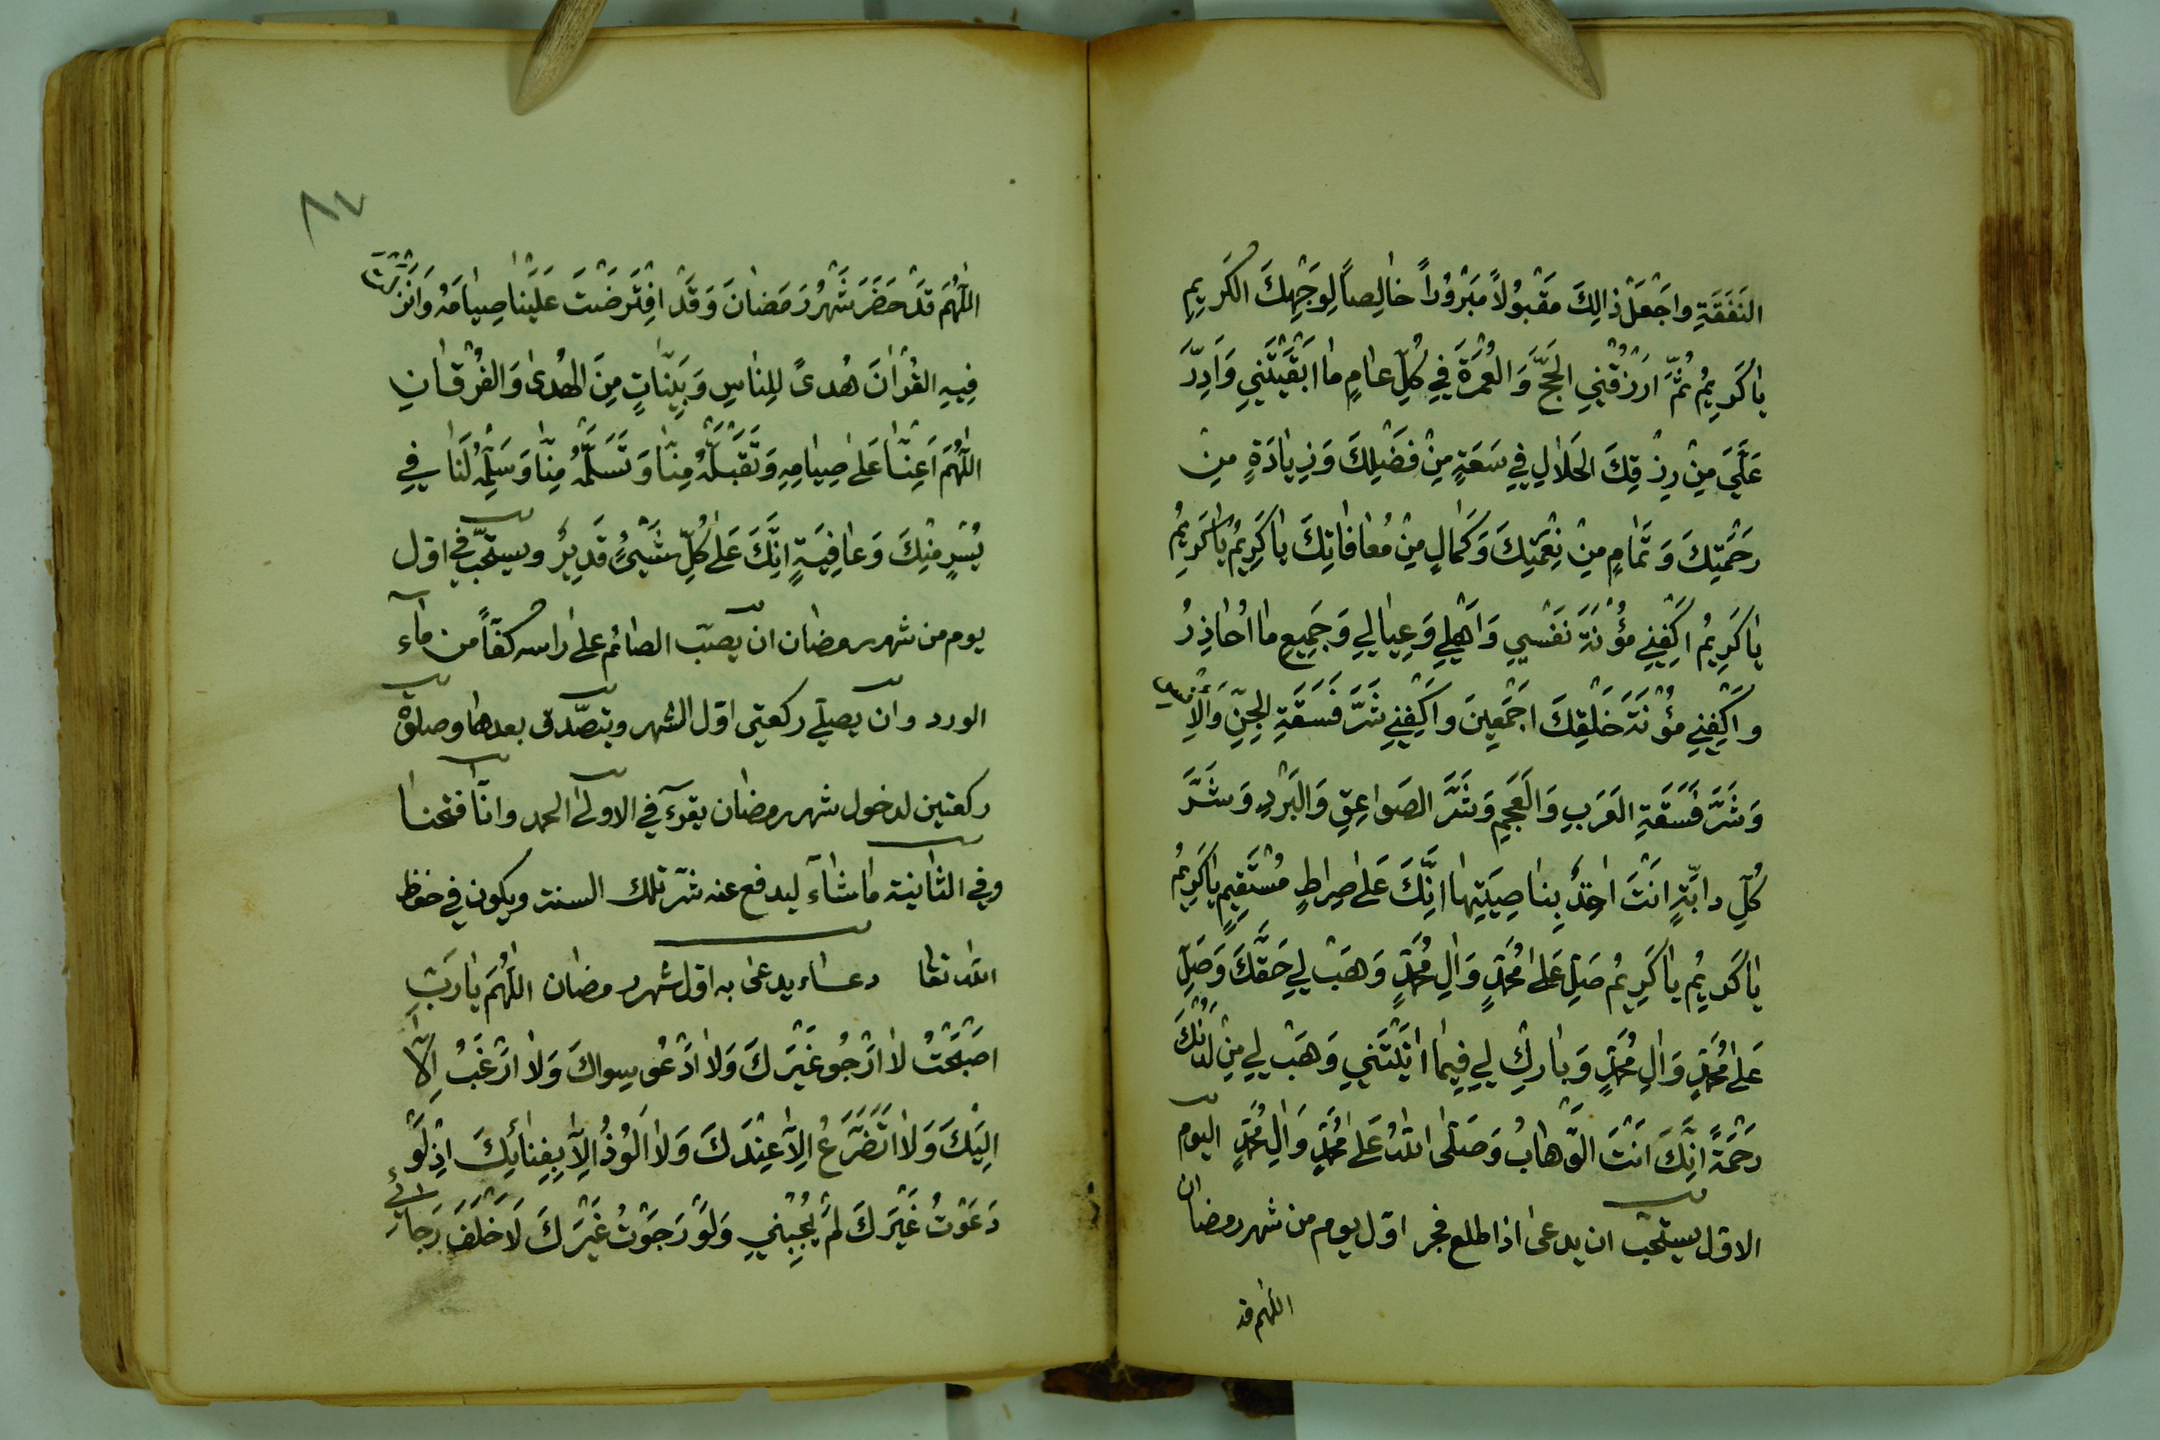 النَفَقَةِ واجْعَلْ ذالِكَ مَقْبُولاً مَبْرُوراً خالِصاً لِوَجْهِكَ الْكَرِيمِ
يا كَرِيمُ ثُمَّ ارْزُقْنِي الْحَجَّ وَ الْعُمْرَةَ فِي كُلِّ عامٍ ما ابْقَيْتَنِي وَ ادِرَّ
عَلَيَّ مِنْ رِزْقِكَ الْحَلالِ فِي سَعَةٍ مِنْ فَضْلِكَ وَ زِيادَةٍ مِنْ
رَحْمَتِكَ وَ تَمامٍ مِنْ نِعْمَتِكَ وَ كَمالٍ مِنْ مُعافاتِكَ يا كَرِيمُ يا كَرِيمُ
يا كَرِيمُ اكْفِنِي مَؤُنَةَ نَفْسِي وَ اَهْلِي وَ عِيالِي وَ جَمِيعِ ما اُحاذِرُ
و اكْفِنِي مَؤُنَةَ خَلْقِكَ اجْمَعِينَ و اكْفِنِي شَرَّ فَسَقَةِ الجِنِّ وَ الْاِنْسِ
وَ شَرَّ فَسَقَةِ العَرَبِ وَ الْعَجَمِ وَ شَرَّ الصَواعِقِ وَ الْبَرْدِ وَ شَرَّ
كُلِّ دابَّةٍ انْتَ اخِذٌ بِناصِيَتِها انَّكَ عَلى صِراطٍ مُسْتَقِيمٍ يا كَرِيمُ
يا كَرِيمُ يا كَرِيمُ صَلِّ عَلى مُحَمَّدٍ وَ الِ مُحَمَّدٍ وَ هَبْ لِي حَقَّكَ وَ صَلِّ
عَلى مُحَمَّدٍ وَ الِ مُحَمَّدٍ وَ بارِكْ لِي فِيما اتَيْتَنِي وَ هَبْ لِي مِنْ لَدُنْكَ
رَحْمَةً انَّكَ انْتَ الْوَّهابُ وَ صَلَى اللهُ عَلى مُحَمَّدٍ وَ الِ مُحَمَّدٍ اليوم
الاوّل يستحّب ان يدعى اذا طلع فجر اوّل يوم من شهر رمضان
اللهم قد
٨٧
اللّهُمَ قَدْ حَضَرَ شَهْرُ رَمَضانَ وَ قَدْ افْتَرَضْتَ عَلَيْنا صِيامَهُ وَ انْزَلْتَ
فِيهِ القُرْانَ هُدىً لِلناسِ وَ بَيِّناتٍ مِنَ الْهُدى وَ الفُرْقانِ
اللّهُمَ اَعِنّا عَلى صِيامِهِ وَ تَقَبَّلْهُ مِنّا وَ تَسَلَّمْهُ مِنّا وَ سَلِّمْهُ لَنا فِي
يُسْرٍ مِنْكَ وَ عافِيَةٍ انَّكَ عَلى كُلِّ شَيْءٍ قَدِيرٌ ويستحّب في اوّل
يوم من شهر رمضان ان يصّب الصائم على راسه كفاً من ماء
الورد وان يصلّي ركعتي اوّل الشهر ويتصّدق بعدهما وصلوة
ركعتين لدخول شهر رمضان يقرء في الاولى الحمد وانّا فتحنا
وفي الثانية ما شاء ليدفع عنه شّر تلك السنة ويكون في حفظ
الله تعالى دعاء يدعى به اوّل شهر رمضان اللّهُمَ يا رَبِّ
اصْبَحْتُ لا ارْجُو غَيْرَكَ وَ لا ادْعُو سِواكَ وَ لا ارْغَبُ اِلّا
الِيْكَ وَ لا اتَضَرَّعُ الِاّ عِنْدَكَ وَ لا الُوذُ الِاّ بِفِنائِكَ اذْ لَوْ
دَعَوْتُ غَيْرَكَ لَمْ يُجِبْنِي وَ لَوْ رَجَوْتُ غَيْرَكَ لَاَخْلَفَ رَجائِي